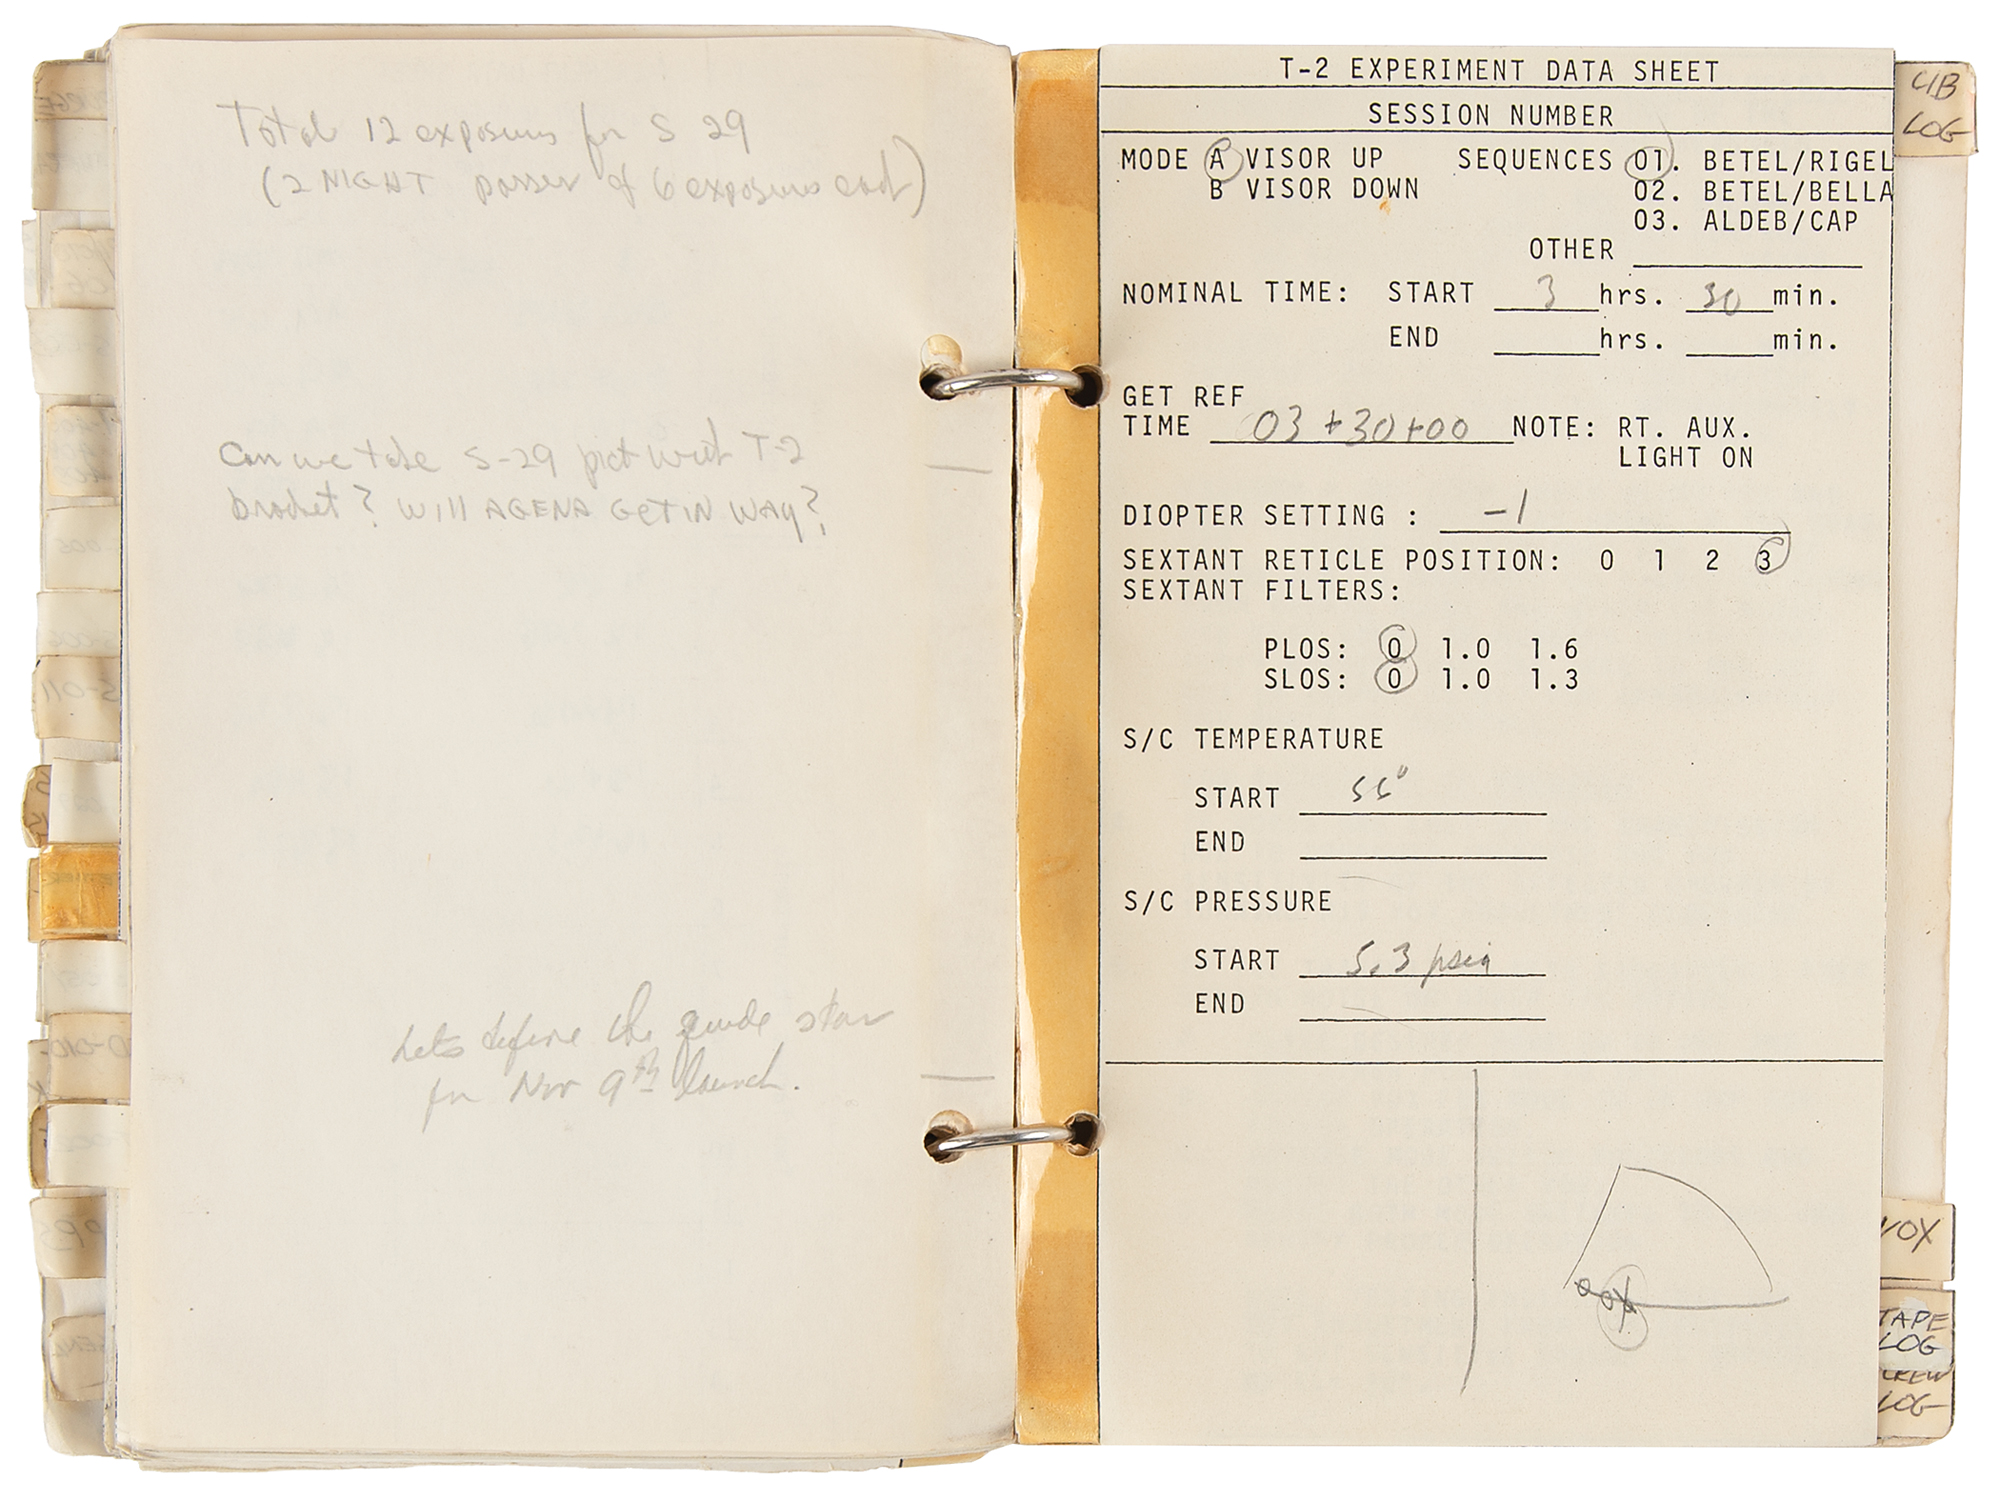 Total 12 exposures for S 29
(2 NIGHT passes of 6 exposures each)
Can we take S-29 pict with T-2
bracket? Will AGENA GET IN WAY?
Lets define the guide star
for Nov 9th launch.
T-2 EXPERIMENT DATA SHEET
SESSION NUMBER
MODE A VISOR UP SEQUENCES 01. BETEL/RIGEL
B VISOR DOWN 02. BETEL/BELLA
03. ALDEB/CAP
OTHER
NOMINAL TIME: START 3 hrs. 30 min.
END hrs. min.
GET REF
TIME 03+30+00 NOTE: RT. AUX.
LIGHT ON
DIOPTER SETTING : -1
SEXTANT RETICLE POSITION: 0 1 2 3
SEXTANT FILTERS:
PLOS: 0 1.0 1.6
SLOS: 0 1.0 1.3
S/C TEMPERATURE
START
END
S/C PRESSURE
START 5.3 psia
END
LOG
VOX
TAPE
LOG
CREW
LOG